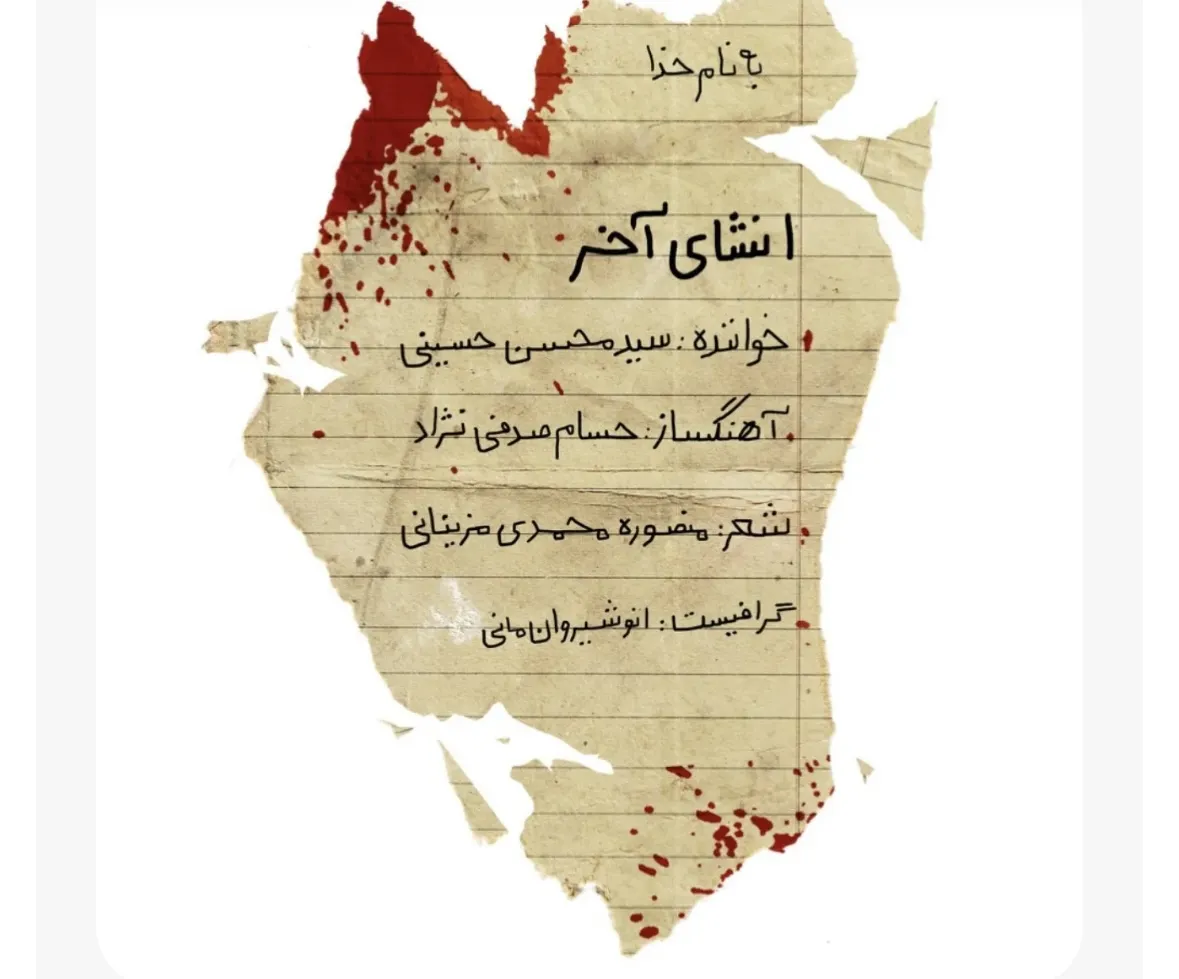 به نام خدا
انشای آخر
خواننده: سید محسن حسینی
آهنگساز: حسام صدفی نژاد
شعر: منصوره محمدی مزینانی
گرافیست: انوشیروان مانی